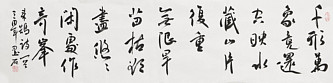 千形萬
象竟還
空映水
藏山片
復重
無限旱
苗枯欲
盡悠悠
閒處作
奇峯
来鵠詩